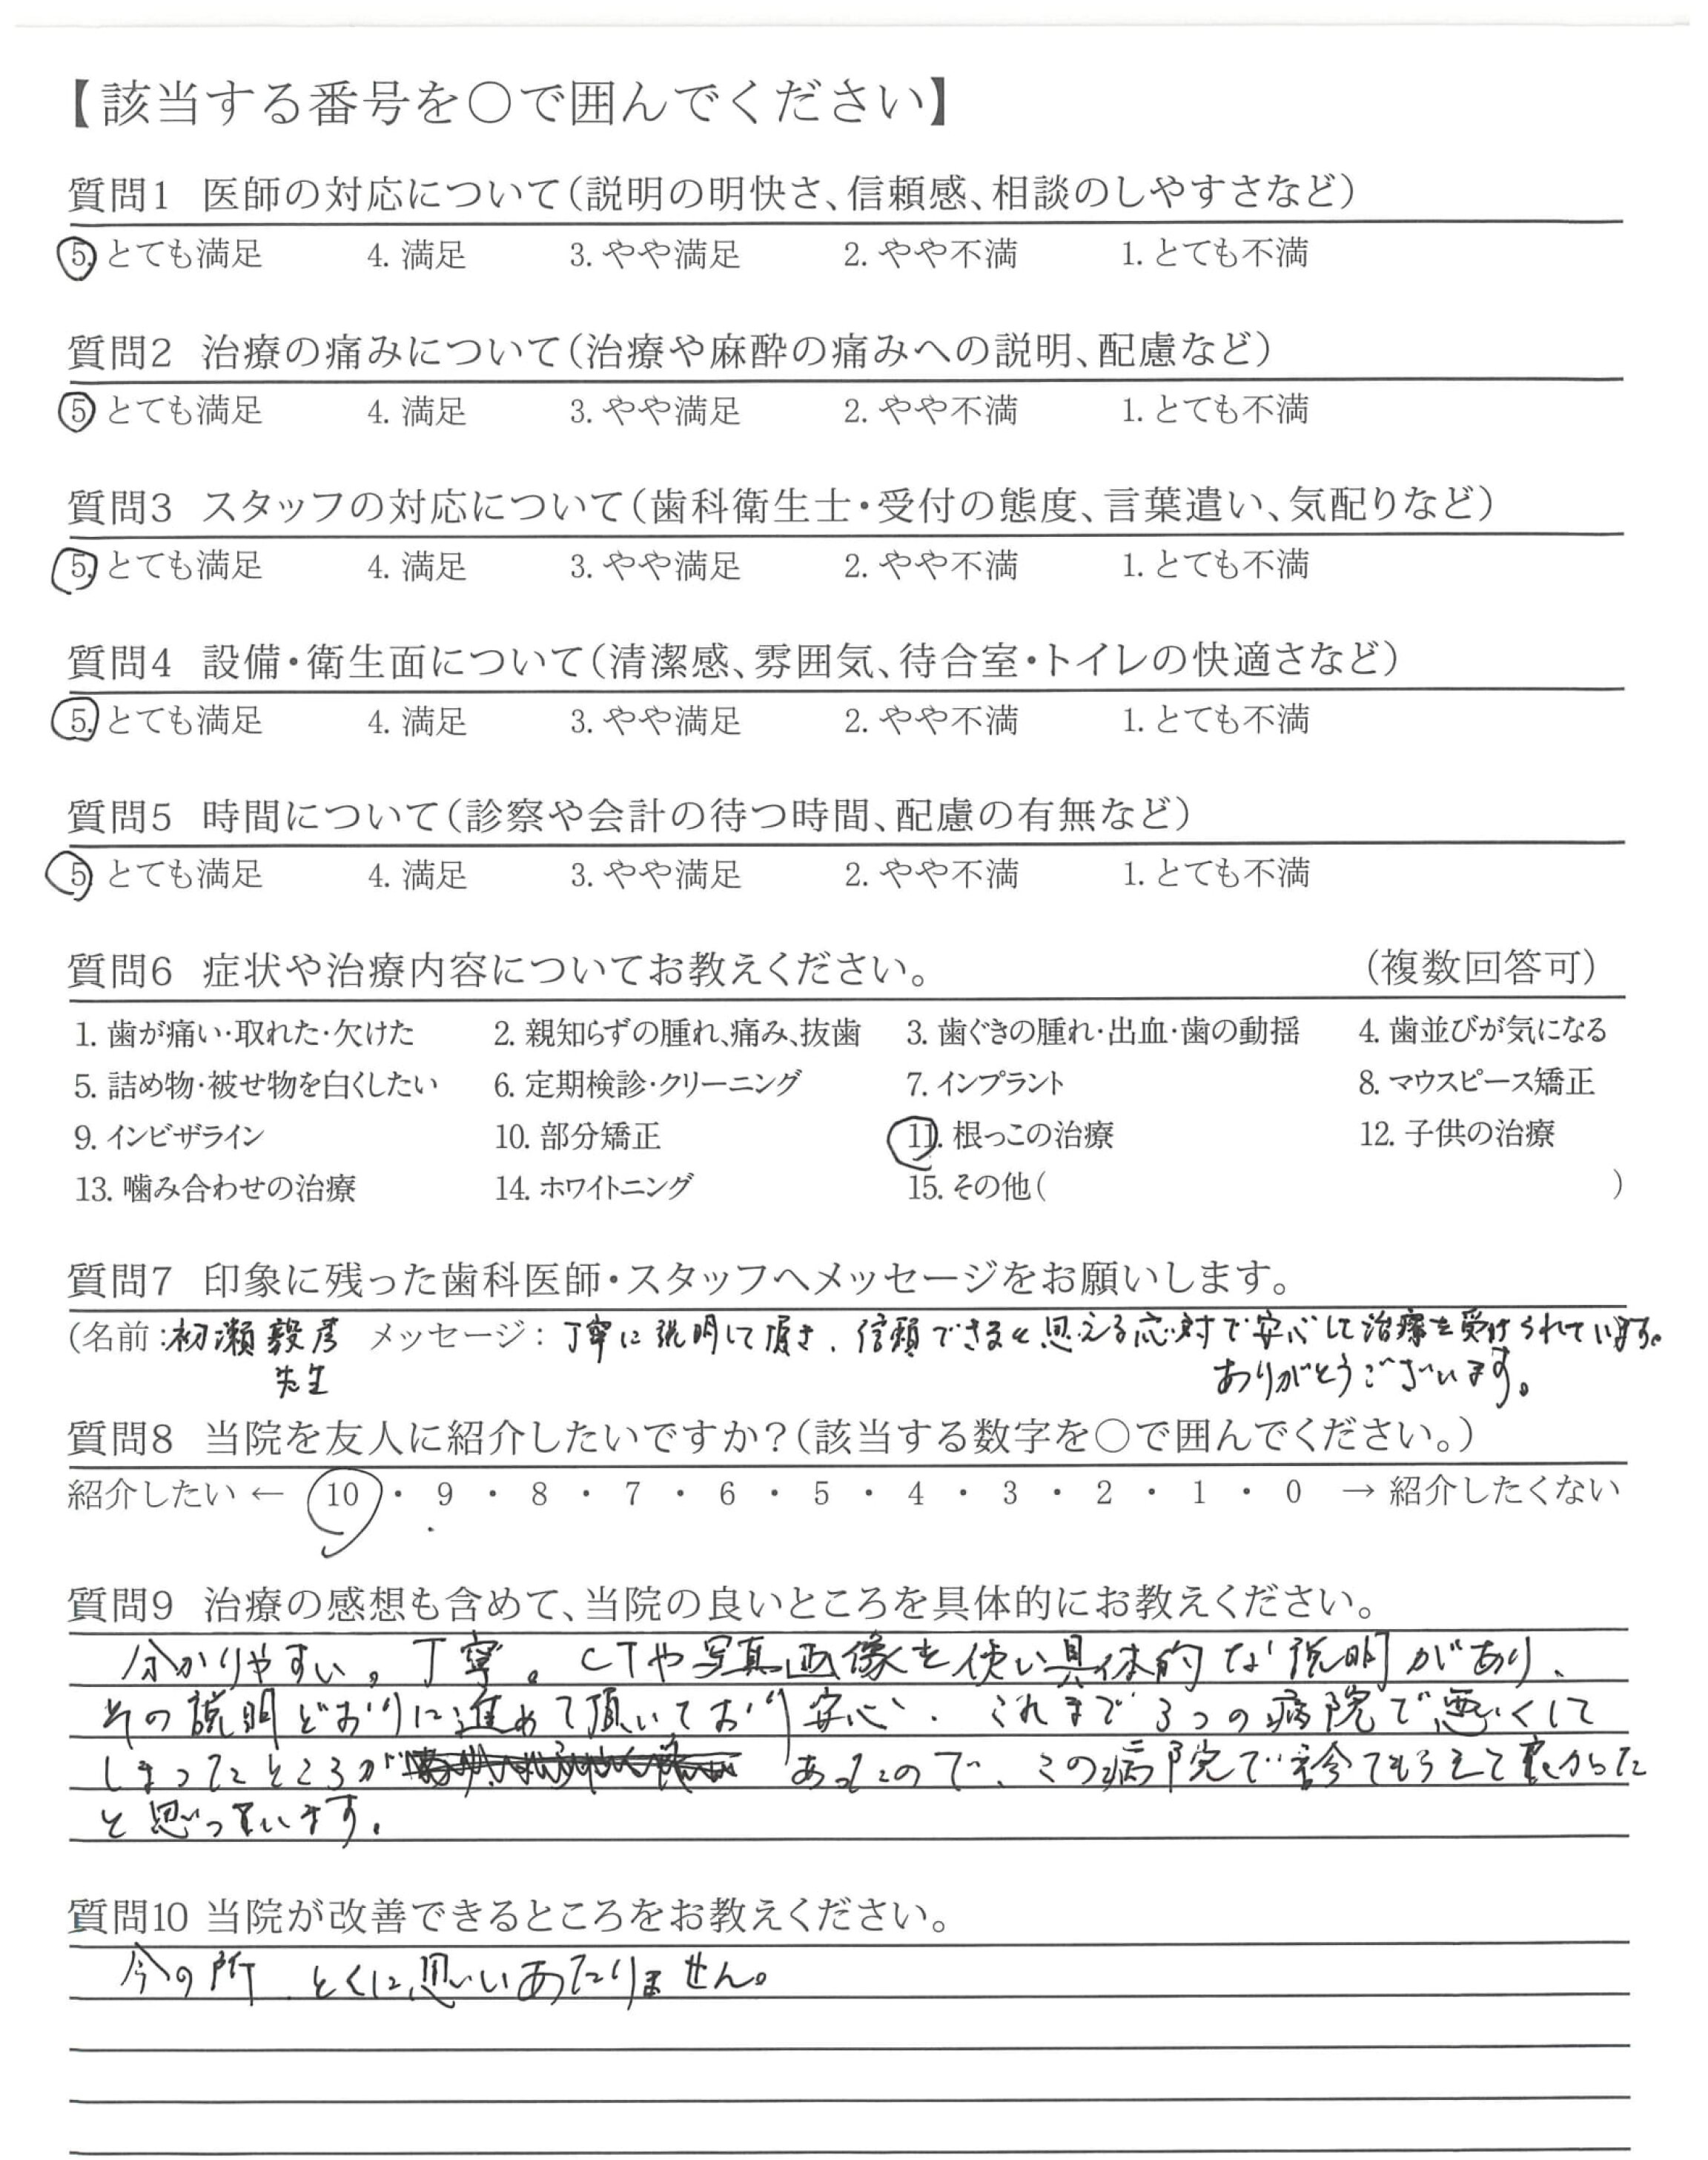 【該当する番号を〇で囲んでください】
質問1 医師の対応について(説明の明快さ、信頼感、相談のしやすさなど)
5. とても満足 4. 満足 3. やや満足 2. やや不満 1. とても不満
質問2 治療の痛みについて(治療や麻酔の痛みへの説明、配慮など)
5 とても満足 4. 満足 3. やや満足 2. やや不満 1. とても不満
質問3 スタッフの対応について(歯科衛生士・受付の態度、言葉遣い、気配りなど)
5. とても満足 4. 満足 3. やや満足 2. やや不満 1. とても不満
質問4 設備・衛生面について(清潔感、雰囲気、待合室・トイレの快適さなど)
5. とても満足 4. 満足 3. やや満足 2. やや不満 1. とても不満
質問5 時間について(診察や会計の待つ時間、配慮の有無など)
5. とても満足 4. 満足 3. やや満足 2. やや不満 1. とても不満
質問6 症状や治療内容についてお教えください。 (複数回答可)
1. 歯が痛い・取れた・欠けた 2. 親知らずの腫れ、痛み、抜歯 3. 歯ぐきの腫れ・出血・歯の動揺 4. 歯並びが気になる
5. 詰め物・被せ物を白くしたい 6. 定期検診・クリーニング 7. インプラント 8. マウスピース矯正
9. インビザライン 10. 部分矯正 11. 根っこの治療 12. 子供の治療
13. 噛み合わせの治療 14. ホワイトニング 15. その他( )
質問7 印象に残った歯科医師・スタッフへメッセージをお願いします。
(名前:初瀬毅彦 メッセージ: 丁寧に説明して頂き、信頼できると思える応対で安心して治療を受けられています。
先生 ありがとうございます。
質問8 当院を友人に紹介したいですか?(該当する数字を〇で囲んでください。)
紹介したい ← 10 ・ 9 ・ 8 ・ 7 ・ 6 ・ 5 ・ 4 ・ 3 ・ 2 ・ 1 ・ 0 → 紹介したくない
質問9 治療の感想も含めて、当院の良いところを具体的にお教えください。
分かりやすい。丁寧。CTや写真画像を使い具体的な説明があり、
その説明どおりに進めて頂いており安心、これまで3つの病院で悪くして
しまったところが あったので、この病院で診てもらえて良かった
と思っています。
質問10 当院が改善できるところをお教えください。
今の所 とくに思いあたりません。